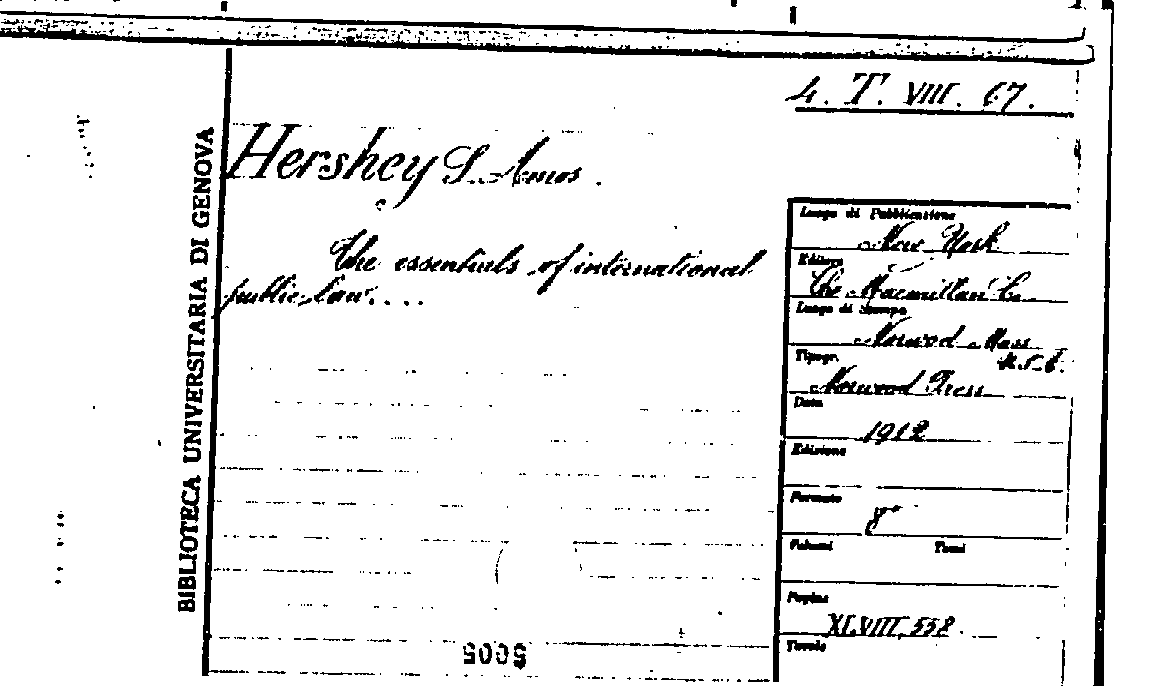 4. T. VIII. 67.
BIBLIOTECA UNIVERSITARIA DI GENOVA
Hershey S. Amos.
The essentials of international
public law....
Luogo di Pubblicazione
New York
Editore
The Macmillan C.
Luogo di Stampa
Norwod Mass
U.S.A.
Tipogr.
Norwood Press
Data
1912
Edizione
Formato
8°
Volumi Tomi
Pagine
XLVIII, 558
Tavole
5005